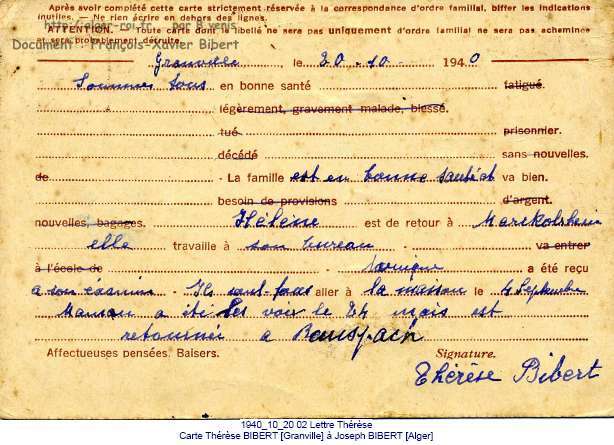 Après avoir complété cette carte strictement réservée à la correspondance d'ordre familial, biffer les indications
inutiles. — Ne rien écrire en dehors des lignes.
ATTENTION. — Toute carte dont le libellé ne sera pas uniquement d'ordre familial ne sera pas acheminée
et sera probablement détruite.
par B.Venis
Document : François-Xavier Bibert
Granville le 20 - 10 - 1940
Sommes tous en bonne santé fatigué.
légèrement, gravement malade, blessé.
tué. prisonnier.
décédé sans nouvelles.
de - La famille est en bonne santé et va bien.
besoin de provisions d'argent.
nouvelles, bagages. Hélène est de retour à Marckolsheim
elle travaille à son bureau - va entrer
à l'école de - a été reçu
à son examen - Ils sont tous aller à la maison le 4 Septembre
Maman a été les voir le 24 mais est
retourné a
Affectueuses pensées. Baisers. Signature.
Thérèse Bibert
1940_10_20 02 Lettre Thérèse
Carte Thérèse BIBERT [Granville] à Joseph BIBERT [Alger]